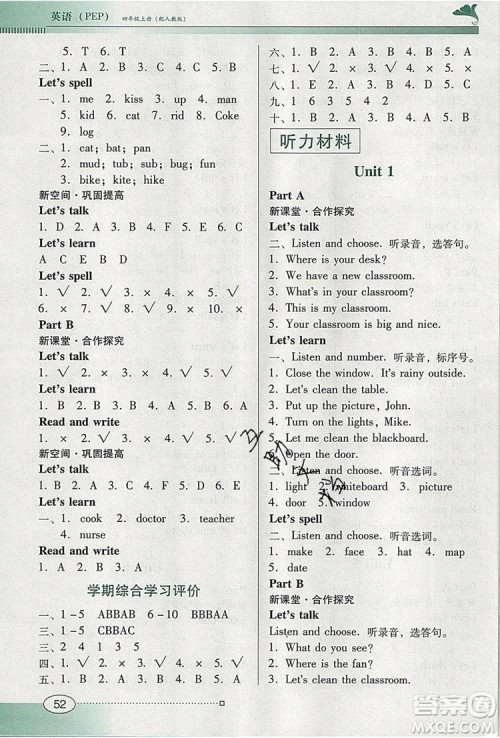 英语（PEP） 四年级上册（配人教版）
5. T 6. T
二、1. B 2. A 3. A 4. B
Let's spell
一、1. me 2. kiss 3. up 4. use
5. kid 6. cake 7. rid 8. Coke
9. log
二、1. cat; bag; pan
2. mud; tub; mum; bus
3. bike; kite; hike
新空间·巩固提高
Let's talk
1. D 2. A 3. B 4. F 5. C 6. E
Let's learn
A C E B D
Let's spell
1. √ 2. √ 3. × 4. × 5. √
6. × 7. × 8. √ 9. √ 10. √
Part B
新课堂·合作探究
Let's talk
一、1. √ 2. × 3. × 4. √ 5. √
二、1. B 2. B 3. A 4. B 5. A
Read and write
1. × 2. √ 3. √ 4. √ 5. ×
新空间·巩固提高
Let's talk
1. B 2. A 3. A 4. B 5. B
Let's learn
一、1. cook 2. doctor 3. teacher
4. nurse
二、1. B 2. A 3. B 4. A
Read and write
1. B 2. A 3. A
学期综合学习评价
一、1－5 ABBAB 6－10 BBBAB
二、1－5 CBBAC
三、5 2 4 1 3
四、1. √ 2. × 3. √ 4. × 5. √
五、1. B 2. A 3. B 4. B 5. A
52
六、1. B 2. A 3. B 4. C 5. A
七、1. √ 2. √ 3. √ 4. × 5. ×
八、1. E 2. D 3. A 4. B 5. C
九、1 6 3 4 2 5
十、1. B 2. A 3. C 4. A 5. B
听力材料
Unit 1
Part A
新课堂·合作探究
Let's talk
二、Listen and choose. 听录音，选答句。
1. Where is your desk?
2. We have a new classroom.
3. What's in your classroom?
4. This is my classroom.
5. Your classroom is big and nice.
Let's learn
一、Listen and number. 听录音，标序号。
1. Close the window. It's rainy outside.
2. Let's clean the table.
3. Put up the picture, John.
4. Turn on the lights, Mike.
5. Let me clean the blackboard.
6. Open the door.
二、Listen and choose. 听音选词。
1. light 2. whiteboard 3. picture
4. door 5. window
Let's spell
一、Listen and choose. 听音选词。
1. make 2. face 3. hat 4. map
5. date
Part B
新课堂·合作探究
Let's talk
Listen and choose. 听录音，选答句。
1. What do you see?
2. Where is the fan?